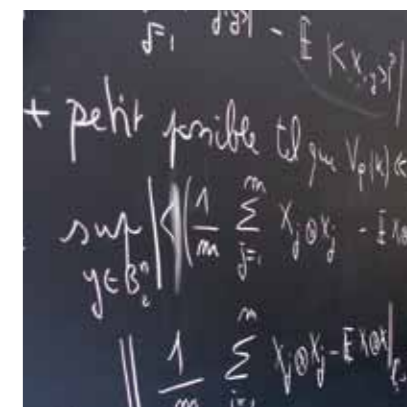 j=1 - 𝔼 |<X,y>|ᵖ|
+ petit possible tel que V_p(K) ≤
sup_{y∈B₂ⁿ} |<(1/m ∑_{j=1}^m X_j⊗X_j - 𝔼 X⊗
‖ 1/m ∑_{j=1}^m X_j⊗X_j - 𝔼 X⊗X ‖